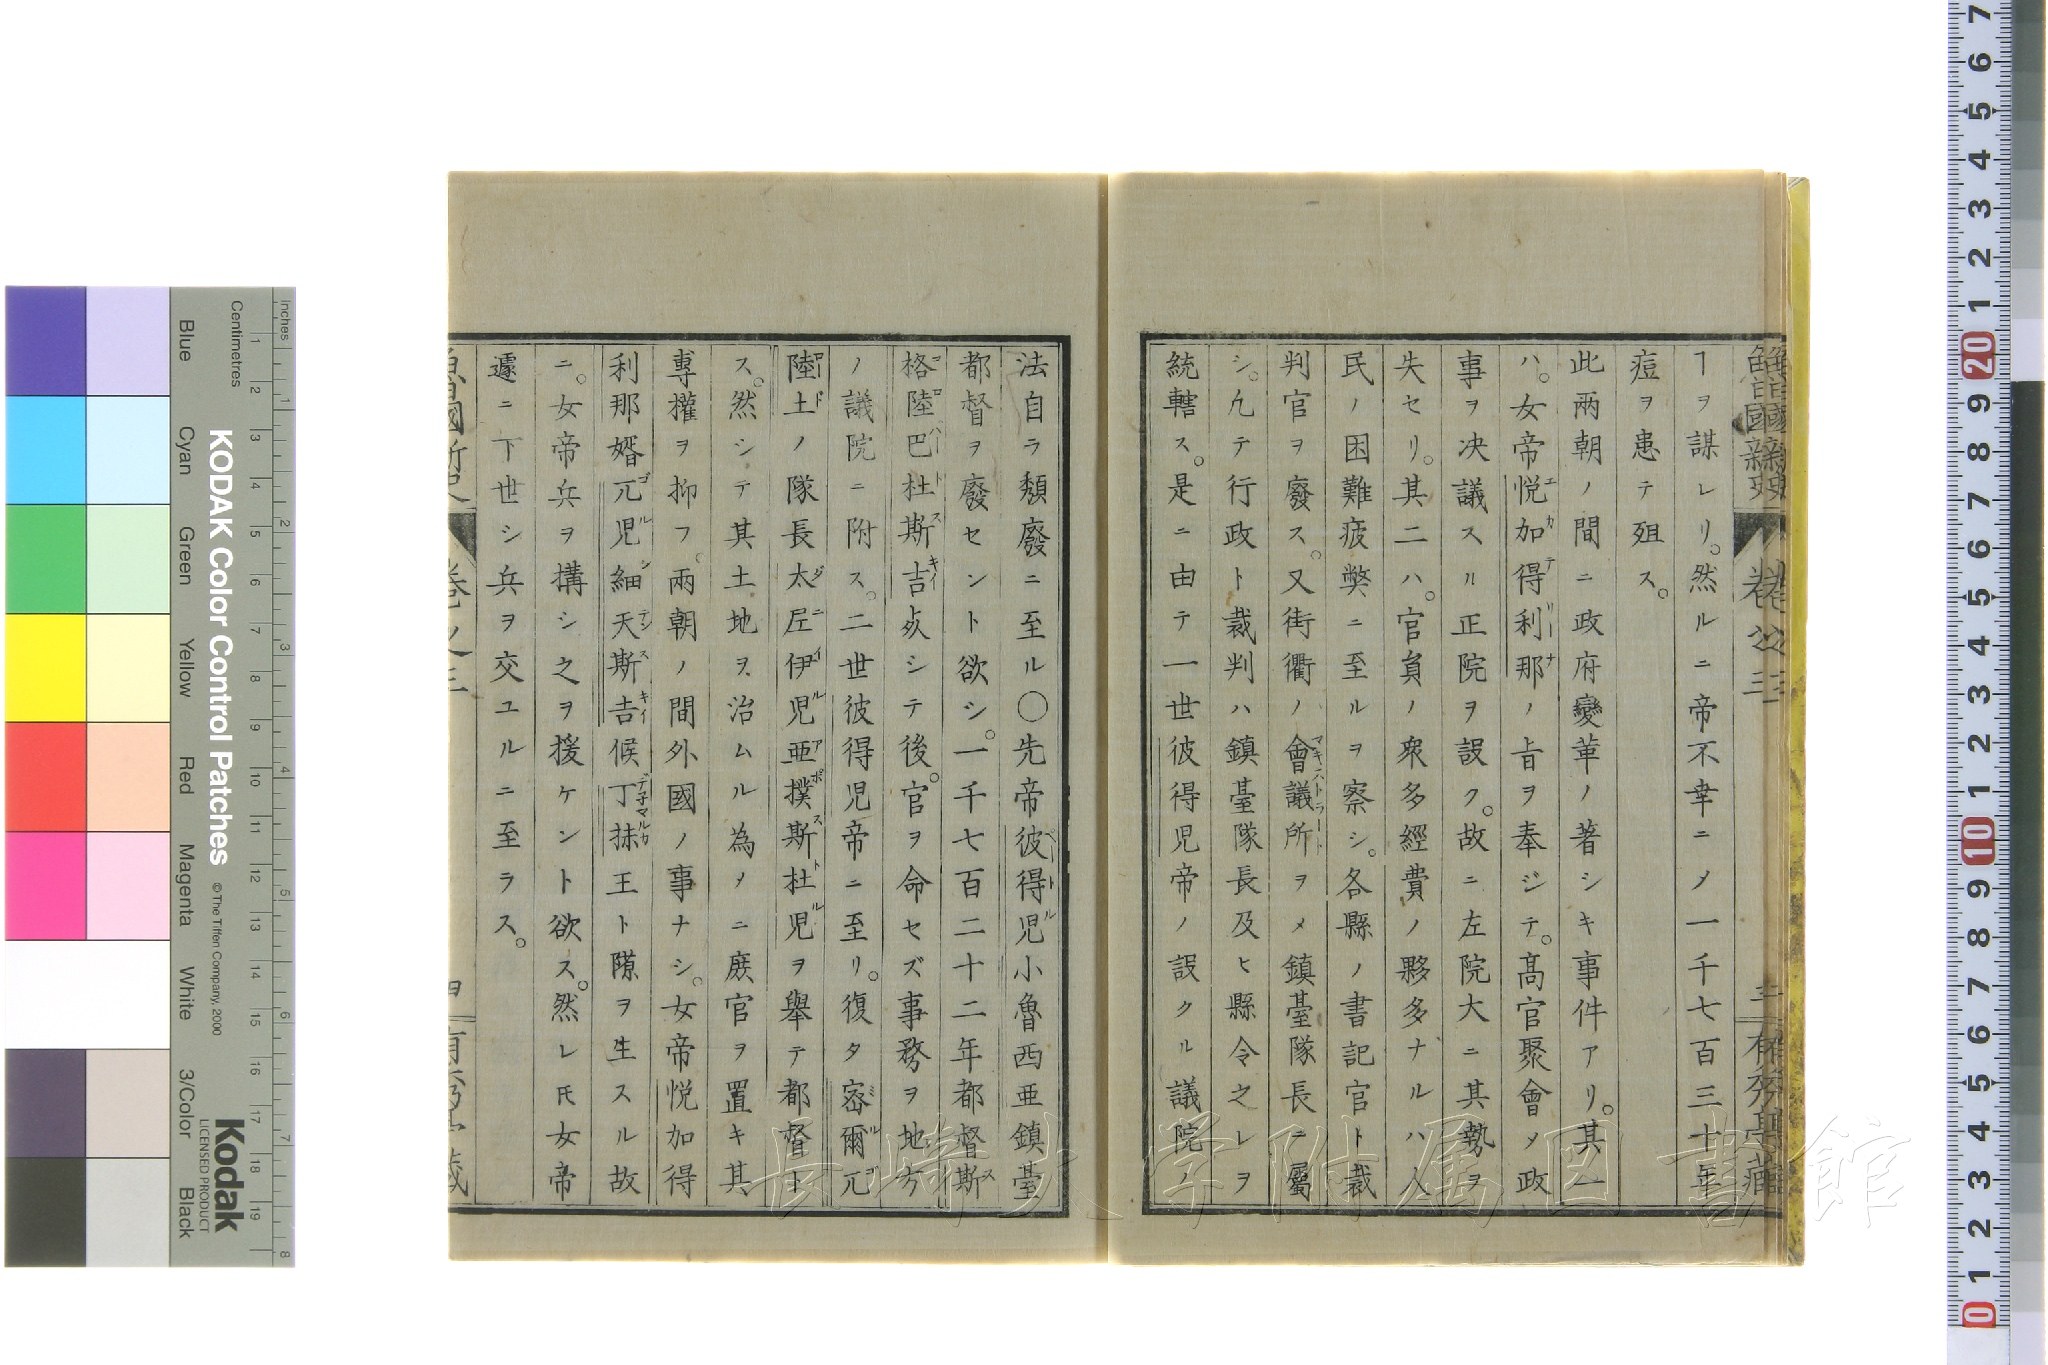 ヿヲ謀レリ。然ルニ帝不幸ニノ一千七百三十年
痘ヲ患テ殂ス。
此兩朝ノ間ニ政府變革ノ著シキ事件アリ。其一
ハ。女帝悦加得利那ノ旨ヲ奉ジテ。髙官聚會メ政
事ヲ决議スル正院ヲ設ク。故ニ左院大ニ其勢ヲ
失セリ。其二ハ。官員ノ衆多經費ノ夥多ナルハ人
民ノ困難疲弊ニ至ルヲ察シ。各縣ノ書記官ト裁
判官ヲ廢ス。又街衢ノ會議所ヲメ鎮臺隊長ニ屬
シ。凢テ行政ト裁判ハ鎮臺隊長及ヒ縣令之レヲ
統轄ス。是ニ由テ一世彼得児帝ノ設クル議院ノ
法自ラ頽廢ニ至ル〇先帝彼得児小魯西亜鎮臺
都督ヲ廢セント欲シ。一千七百二十二年都督斯
格陸巴杜斯吉歿シテ後。官ヲ命セズ事務ヲ地方
ノ議院ニ附ス。二世彼得児帝ニ至リ。復タ密爾兀
陸土ノ隊長太尼伊児亜撲斯杜児ヲ舉テ都督ト
ス。然シテ其土地ヲ治ムル為メニ庶官ヲ置キ其
專權ヲ抑フ。兩朝ノ間外國ノ事ナシ。女帝悦加得
利那婿兀児細天斯吉候丁抹王ト隙ヲ生スル故
ニ。女帝兵ヲ搆シ之ヲ援ケント欲ス。然レ氏女帝
遽ニ下世シ兵ヲ交ユルニ至ラス。
長崎大学附属図書館
KODAK Color Control Patches
© The Tiffen Company, 2000
Kodak
LICENSED PRODUCT
Inches
Centimetres
Blue
Cyan
Green
Yellow
Red
Magenta
White
3/Color
Black